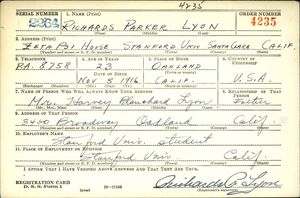 4235
SERIAL NUMBER
1. NAME (Print)
ORDER NUMBER
2264
RICHARDS PARKER LYON
4235
2. ADDRESS (Print)
ZETA PSI HOUSE STANFORD UNIV. SANTA CLARA CALIF.
3. TELEPHONE
4. AGE IN YEARS
5. PLACE OF BIRTH
6. COUNTRY OF CITIZENSHIP
PA. 8758
23
OAKLAND
DATE OF BIRTH
Nov 8 1916
CALIF.
U.S.A
7. NAME OF PERSON WHO WILL ALWAYS KNOW YOUR ADDRESS
8. RELATIONSHIP OF THAT PERSON
Mr. Harvey Blanchard Lyon
Father
9. ADDRESS OF THAT PERSON
3400 Broadway Oakland Calif.
10. EMPLOYER'S NAME
Stanford Univ. student
11. PLACE OF EMPLOYMENT OR BUSINESS
Stanford Univ. Calif
I AFFIRM THAT I HAVE VERIFIED ABOVE ANSWERS AND THAT THEY ARE TRUE.
REGISTRATION CARD
D. S. S. Form 1
Richards P. Lyon